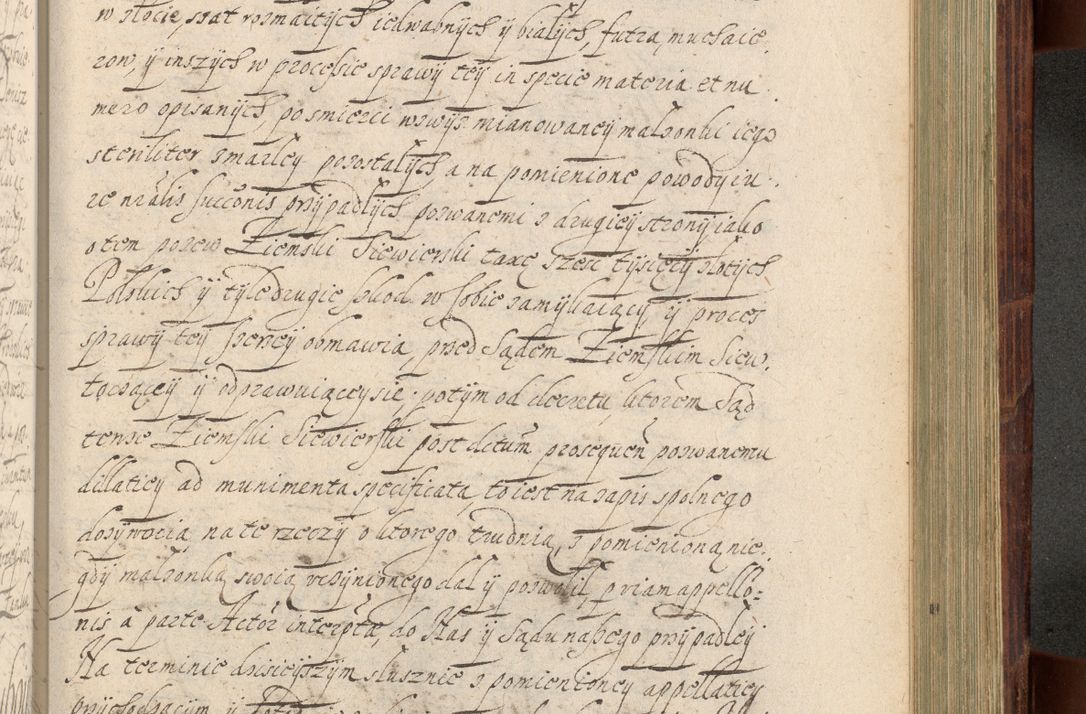 w złocie, szat rozmaitych iedwabnych y białych, futra, muchaie
row, y inszych w processie sprawy tey in specie materia et nu
mero opisanych, po smierci wzwyż mianowaney małzonki iego
steriliter zmarłey pozostałych a na pomienione powody iu
re nralis succonis przypadłych pozwanemi z drugiey strony iako
o tem pozew Ziemski Siewierski taxę szesc tysięcy złotych
Polskich y tyle drugie szkod w sobie zamykaiący y proces
sprawy tey szerzey obmawia, przed Sądem Ziemskim Siew.
toczącey y odprawuiącey sie. potym od decretu ktorem Sąd
tenze Ziemski Siewierski post dctum prosequen pozwanemu
dillaticy ad munimenta specificata to iest na zapis spolnego
dozywocia, na te rzeczy o ktorego trudnią, z pomienioną nie.
gdy małzonką swoią uczynionego dał y pozwolił, p riam appello=
nis a parte Actor interpta, do Nas y Sądu naszego przypadłey
Na terminie dzisieyszym słusznie z pomienioney appellaticy
przychodzącym y